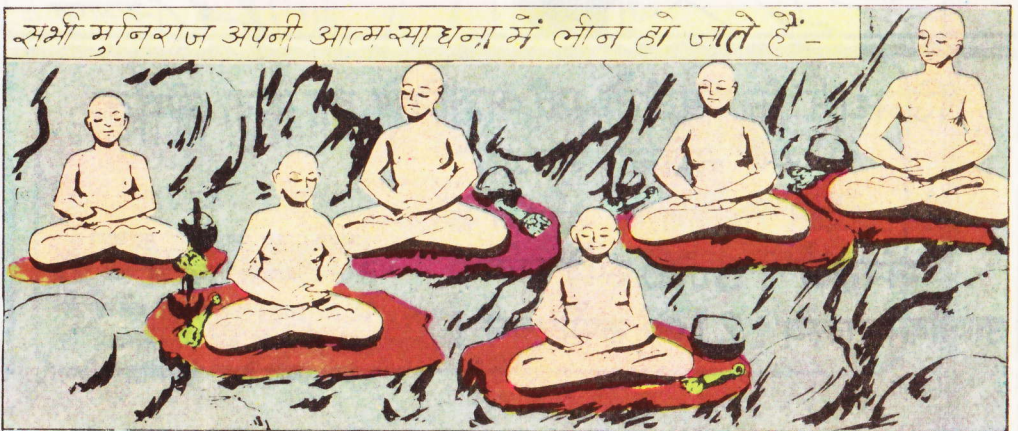 सभी मुनिराज अपनी आत्म साधना में लीन हो जाते हैं -